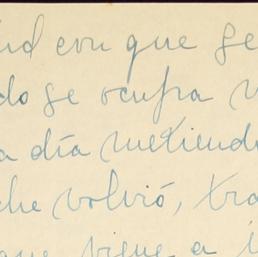 ud con que se
do se ocupa
a día metiend
che volvió, tra
que viene a